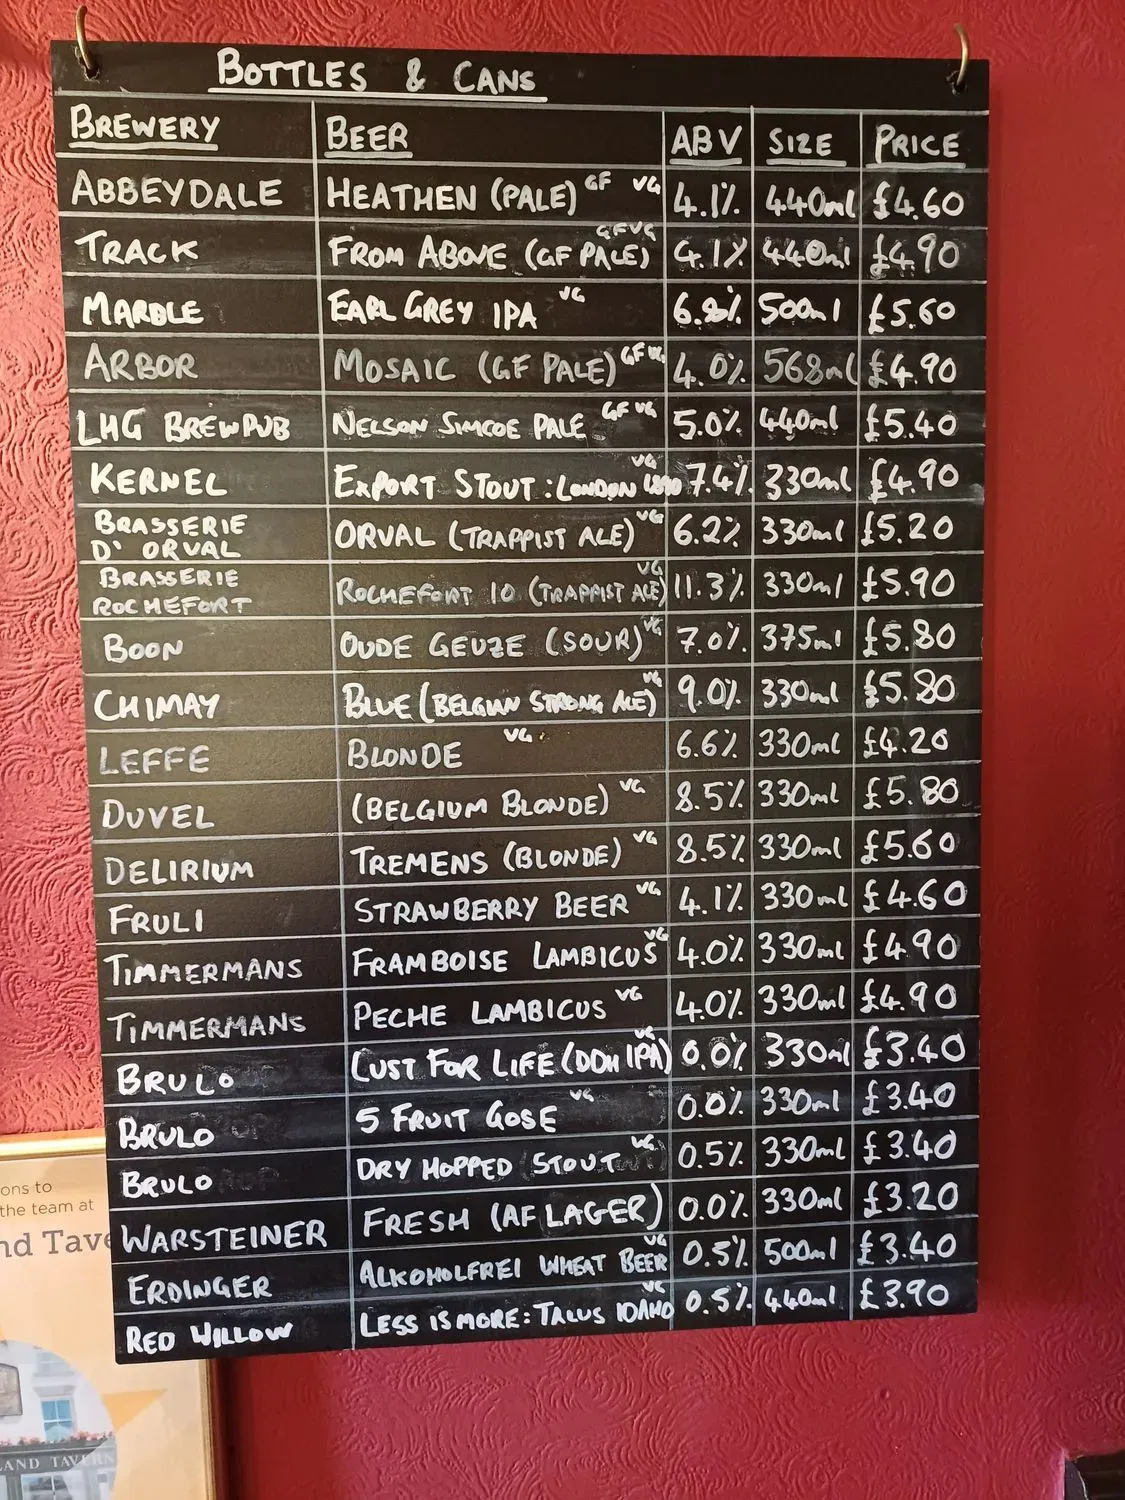 BOTTLES & CANS
BREWERY BEER ABV SIZE PRICE
ABBEYDALE HEATHEN (PALE) GF VG 4.1% 440ml £4.60
TRACK FROM ABOVE (GF PALE) GF VG 4.1% 440ml £4.90
MARBLE EARL GREY IPA VG 6.8% 500ml £5.60
ARBOR MOSAIC (GF PALE) GF VG 4.0% 568ml £4.90
LHG BREWPUB NELSON SIMCOE PALE GF VG 5.0% 440ml £5.40
KERNEL EXPORT STOUT : LONDON 1890 VG 7.4% 330ml £4.90
BRASSERIE D' ORVAL ORVAL (TRAPPIST ALE) VG 6.2% 330ml £5.20
BRASSERIE ROCHEFORT ROCHEFORT 10 (TRAPPIST ALE) VG 11.3% 330ml £5.90
BOON OUDE GEUZE (SOUR) VG 7.0% 375ml £5.80
CHIMAY BLUE (BELGIAN STRONG ALE) VG 9.0% 330ml £5.80
LEFFE BLONDE VG 6.6% 330ml £4.20
DUVEL (BELGIUM BLONDE) VG 8.5% 330ml £5.80
DELIRIUM TREMENS (BLONDE) VG 8.5% 330ml £5.60
FRULI STRAWBERRY BEER VG 4.1% 330ml £4.60
TIMMERMANS FRAMBOISE LAMBICUS VG 4.0% 330ml £4.90
TIMMERMANS PECHE LAMBICUS VG 4.0% 330ml £4.90
BRULO LUST FOR LIFE (DDH IPA) VG 0.0% 330ml £3.40
BRULO 5 FRUIT GOSE VG 0.0% 330ml £3.40
BRULO DRY HOPPED STOUT VG 0.5% 330ml £3.40
WARSTEINER FRESH (AF LAGER) 0.0% 330ml £3.20
ERDINGER ALKOHOLFREI WHEAT BEER VG 0.5% 500ml £3.40
RED WILLOW LESS IS MORE : TALUS IDAHO VG 0.5% 440ml £3.90
ons to
the team at
nd Tave
AND TAVERN